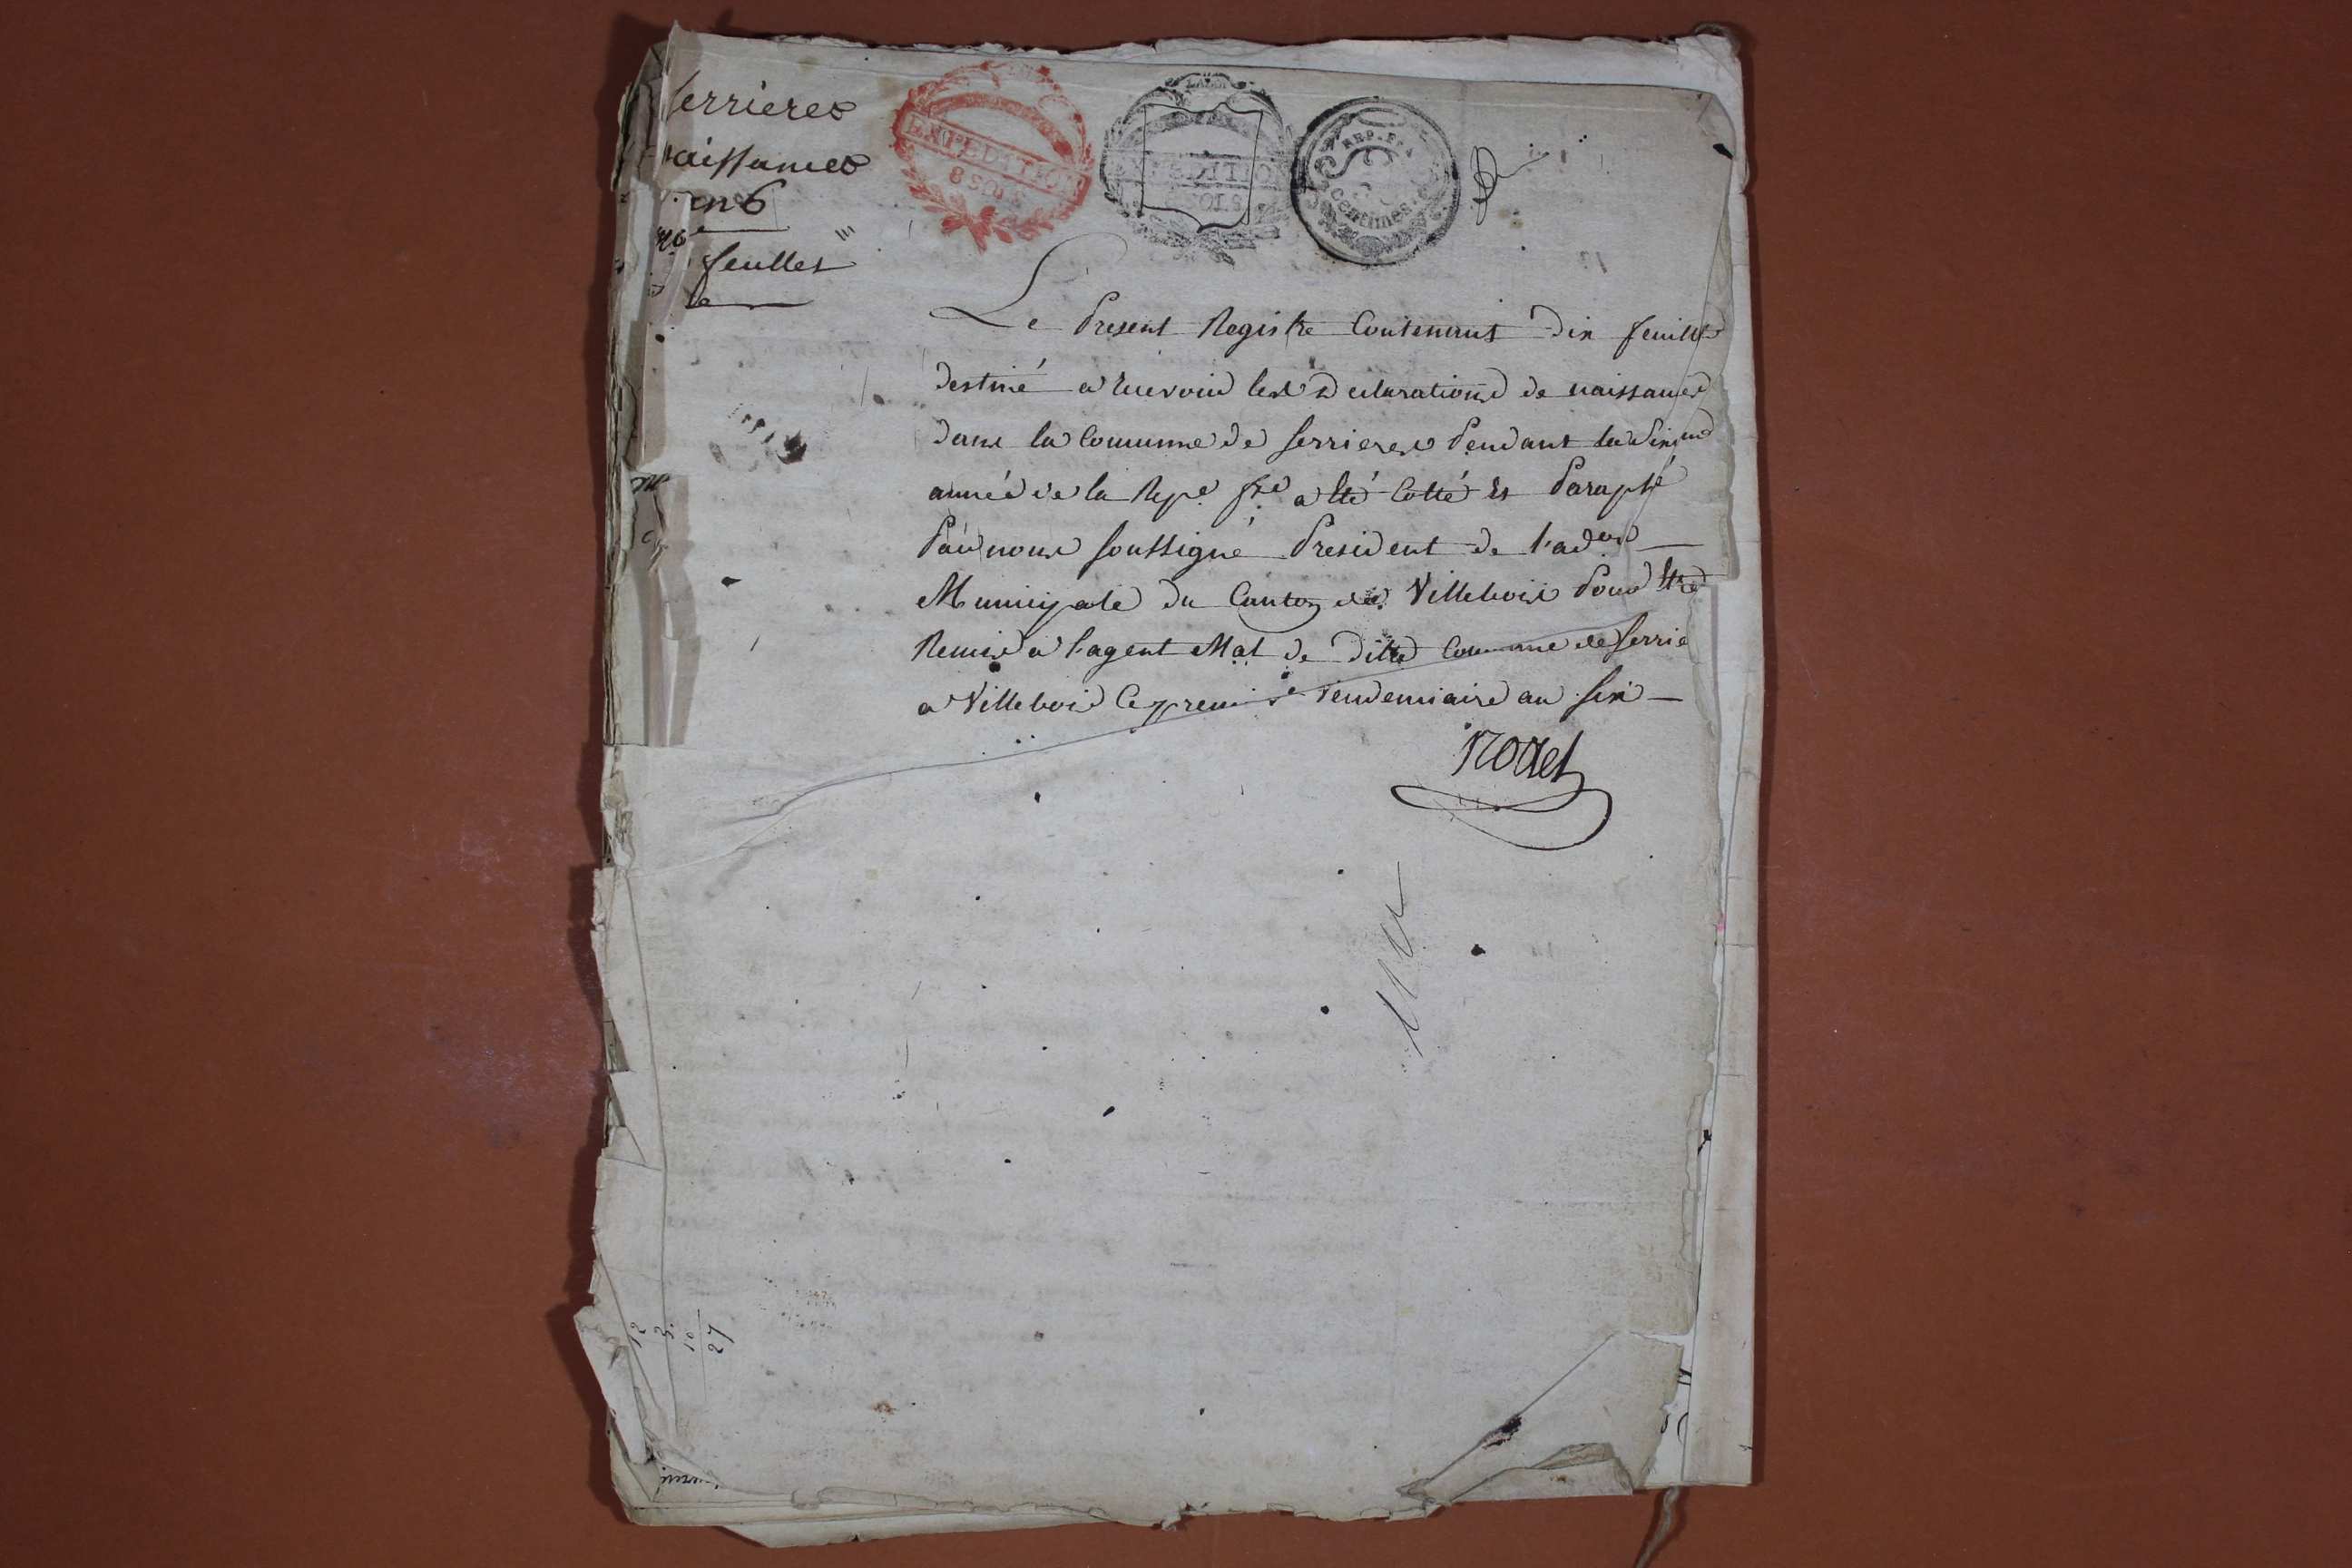 Serrieres
naissances
an 6
feuilles
EXPEDITION
8 SOUS
REP. FRA
centimes
Le Présent Registre Contenant Dix feuillets
destiné a recevoir les declarations de naissances
dans la Commune de Serrieres Pendant la Sixme
année de la Repe fse a été Cotté et Paraphé
Par nous soussigné Président de l'adon
Municipale du Canton de Villebois Pour être
Remis a l'agent Mal de ditte Commune de Serrie
a Villebois Ce premier vendemiaire an Six
Rodet
12
3.
10
27